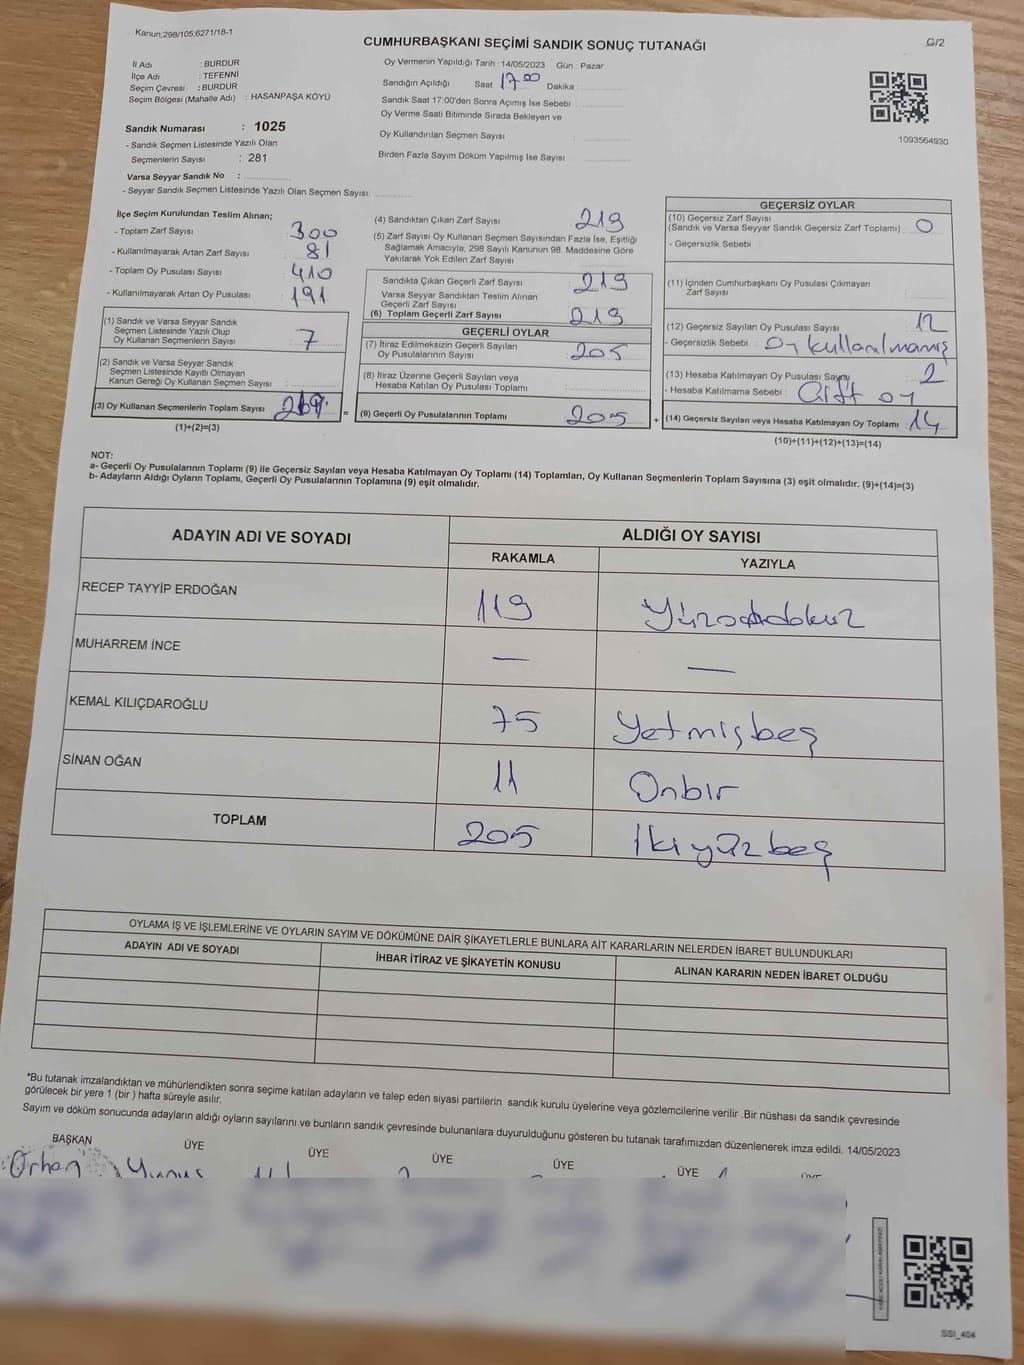 Kanun,298/105,6271/18-1
G/2
CUMHURBAŞKANI SEÇİMİ SANDIK SONUÇ TUTANAĞI
İl Adı : BURDUR
İlçe Adı : TEFENNİ
Seçim Çevresi : BURDUR
Seçim Bölgesi (Mahalle Adı) : HASANPAŞA KÖYÜ
Sandık Numarası : 1025
- Sandık Seçmen Listesinde Yazılı Olan
Seçmenlerin Sayısı : 281
Varsa Seyyar Sandık No :
- Seyyar Sandık Seçmen Listesinde Yazılı Olan Seçmen Sayısı:
Oy Vermenin Yapıldığı Tarih : 14/05/2023 Gün : Pazar
Sandığın Açıldığı Saat 17 00 Dakika :
Sandık Saat 17:00'den Sonra Açımış İse Sebebi :
Oy Verme Saati Bitiminde Sırada Bekleyen ve
Oy Kullandırılan Seçmen Sayısı
Birden Fazla Sayım Döküm Yapılmış İse Sayısı
1093564930
İlçe Seçim Kurulundan Teslim Alınan;
- Toplam Zarf Sayısı 300
- Kullanılmayarak Artan Zarf Sayısı 81
- Toplam Oy Pusulası Sayısı 410
- Kullanılmayarak Artan Oy Pusulası 191
(1) Sandık ve Varsa Seyyar Sandık
Seçmen Listesinde Yazılı Olup
Oy Kullanan Seçmenlerin Sayısı : 7
(2) Sandık ve Varsa Seyyar Sandık
Seçmen Listesinde Kayıtlı Olmayan
Kanun Gereği Oy Kullanan Seçmen Sayısı :
(3) Oy Kullanan Seçmenlerin Toplam Sayısı =
(1)+(2)=(3)
(4) Sandıktan Çıkan Zarf Sayısı 219
(5) Zarf Sayısı Oy Kullanan Seçmen Sayısından Fazla İse, Eşitliği
Sağlamak Amacıyla, 298 Sayılı Kanunun 98. Maddesine Göre
Yakılarak Yok Edilen Zarf Sayısı
Sandıkta Çıkan Geçerli Zarf Sayısı : 219
Varsa Seyyar Sandıktan Teslim Alınan
Geçerli Zarf Sayısı
(6) Toplam Geçerli Zarf Sayısı : 219
GEÇERLİ OYLAR
(7) İtiraz Edilmeksizin Geçerli Sayılan
Oy Pusulalarının Sayısı : 205
(8) İtiraz Üzerine Geçerli Sayılan veya
Hesaba Katılan Oy Pusulası Toplamı :
(9) Geçerli Oy Pusulalarının Toplamı 205 +
GEÇERSİZ OYLAR
(10) Geçersiz Zarf Sayısı
(Sandık ve Varsa Seyyar Sandık Geçersiz Zarf Toplamı) : 0
- Geçersizlik Sebebi :
(11) İçinden Cumhurbaşkanı Oy Pusulası Çıkmayan
Zarf Sayısı
(12) Geçersiz Sayılan Oy Pusulası Sayısı : 12
- Geçersizlik Sebebi : Oy kullanılmamış
(13) Hesaba Katılmayan Oy Pusulası Sayısı 2
- Hesaba Katılmama Sebebi : Çift oy
(14) Geçersiz Sayılan veya Hesaba Katılmayan Oy Toplamı : 14
(10)+(11)+(12)+(13)=(14)
NOT:
a- Geçerli Oy Pusulalarının Toplamı (9) ile Geçersiz Sayılan veya Hesaba Katılmayan Oy Toplamı (14) Toplamları, Oy Kullanan Seçmenlerin Toplam Sayısına (3) eşit olmalıdır. (9)+(14)=(3)
b- Adayların Aldığı Oyların Toplamı, Geçerli Oy Pusulalarının Toplamına (9) eşit olmalıdır.
ADAYIN ADI VE SOYADI ALDIĞI OY SAYISI
RAKAMLA YAZIYLA
RECEP TAYYİP ERDOĞAN 119 Yüzondokuz
MUHARREM İNCE — —
KEMAL KILIÇDAROĞLU 75 Yetmişbeş
SİNAN OĞAN 11 Onbir
TOPLAM 205 İkiyüzbeş
OYLAMA İŞ VE İŞLEMLERİNE VE OYLARIN SAYIM VE DÖKÜMÜNE DAİR ŞİKAYETLERLE BUNLARA AİT KARARLARIN NELERDEN İBARET BULUNDUKLARI
ADAYIN ADI VE SOYADI İHBAR İTİRAZ VE ŞİKAYETİN KONUSU ALINAN KARARIN NEDEN İBARET OLDUĞU
*Bu tutanak imzalandıktan ve mühürlendikten sonra seçime katılan adayların ve talep eden siyasi partilerin sandık kurulu üyelerine veya gözlemcilerine verilir .Bir nüshası da sandık çevresinde
görülecek bir yere 1 (bir ) hafta süreyle asılır.
Sayım ve döküm sonucunda adayların aldığı oyların sayılarını ve bunların sandık çevresinde bulunanlara duyurulduğunu gösteren bu tutanak tarafımızdan düzenlenerek imza edildi. 14/05/2023
BAŞKAN ÜYE ÜYE ÜYE ÜYE ÜYE ÜYE
Orhan Yunus
SSI_404